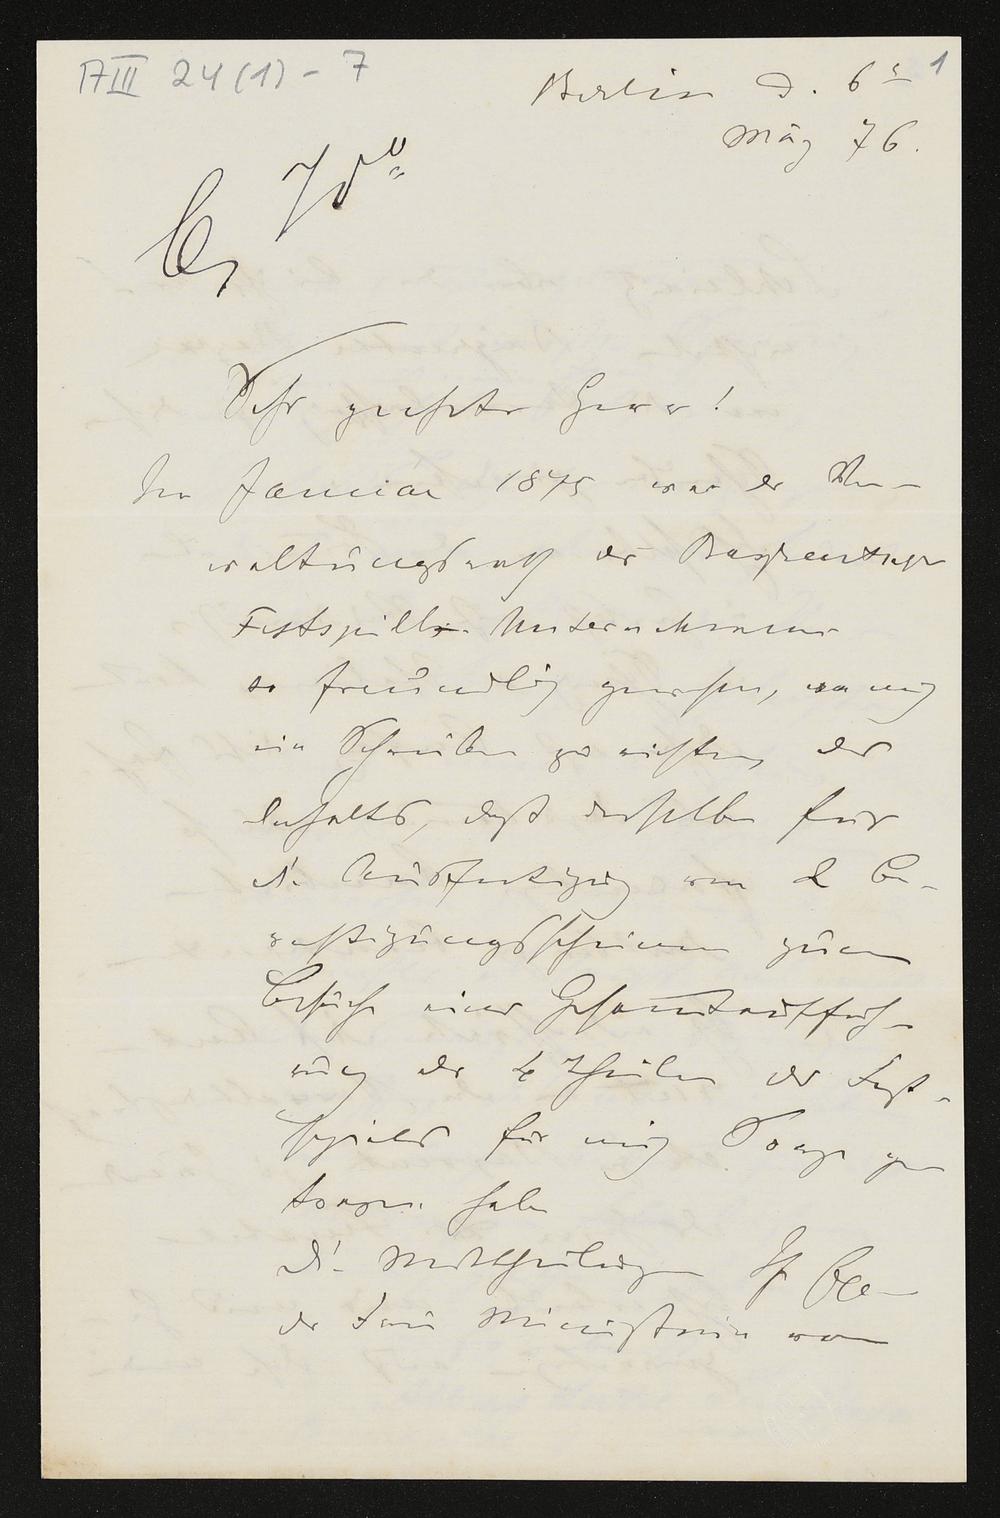 A III 24 (1) - 7
1
Berlin d. 6
März 76.
Sehr geehrter Herr!
Im Januar 1875 war der Ver-
waltungsrath der Bayreuther
Festspiel Unternehmens
so freundlich gewesen, an mich
ein Schreiben zu richten, des
Inhalts, daß derselbe für
die Ausfertigung von 2 Be-
rechtigungsscheinen zum
Besuche einer Gesamtauffüh-
rung der 4 Theile des Fest-
spieles für mich Sorge ge-
tragen habe
die Mittheilung
der Frau Ministerin von